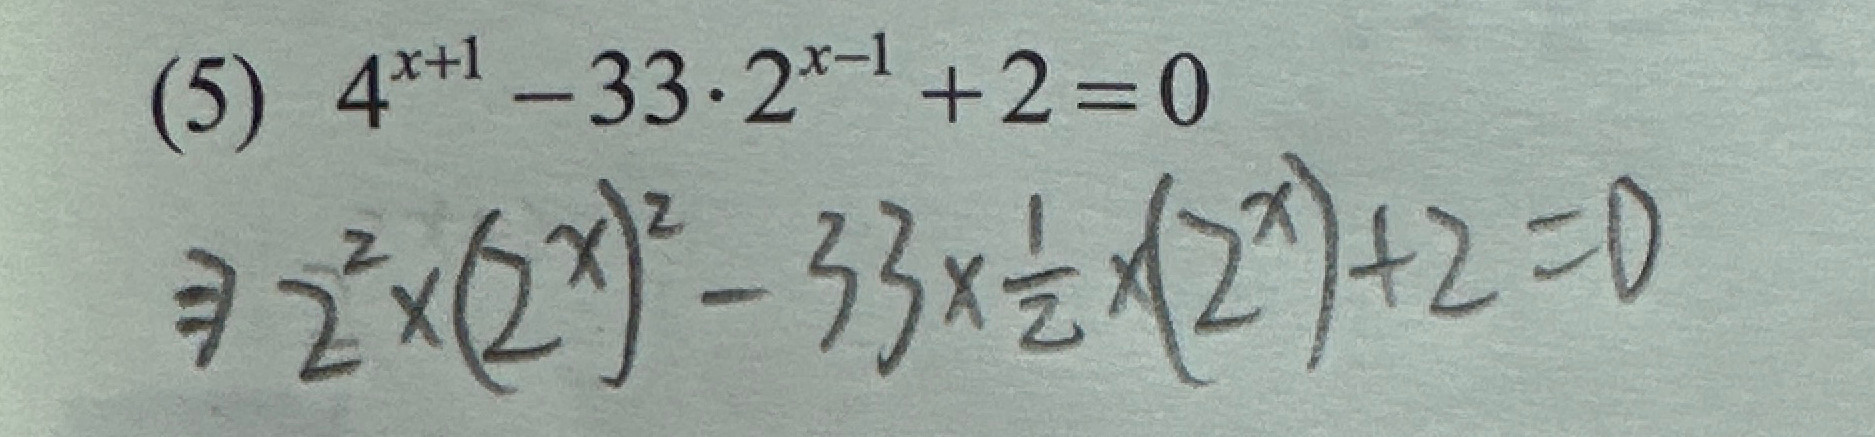 (5) 4^{x+1} − 33 · 2^{x−1} + 2 = 0
⇒ 2^2 × (2^x)^2 − 33 × 1/2 × (2^x) + 2 = 0